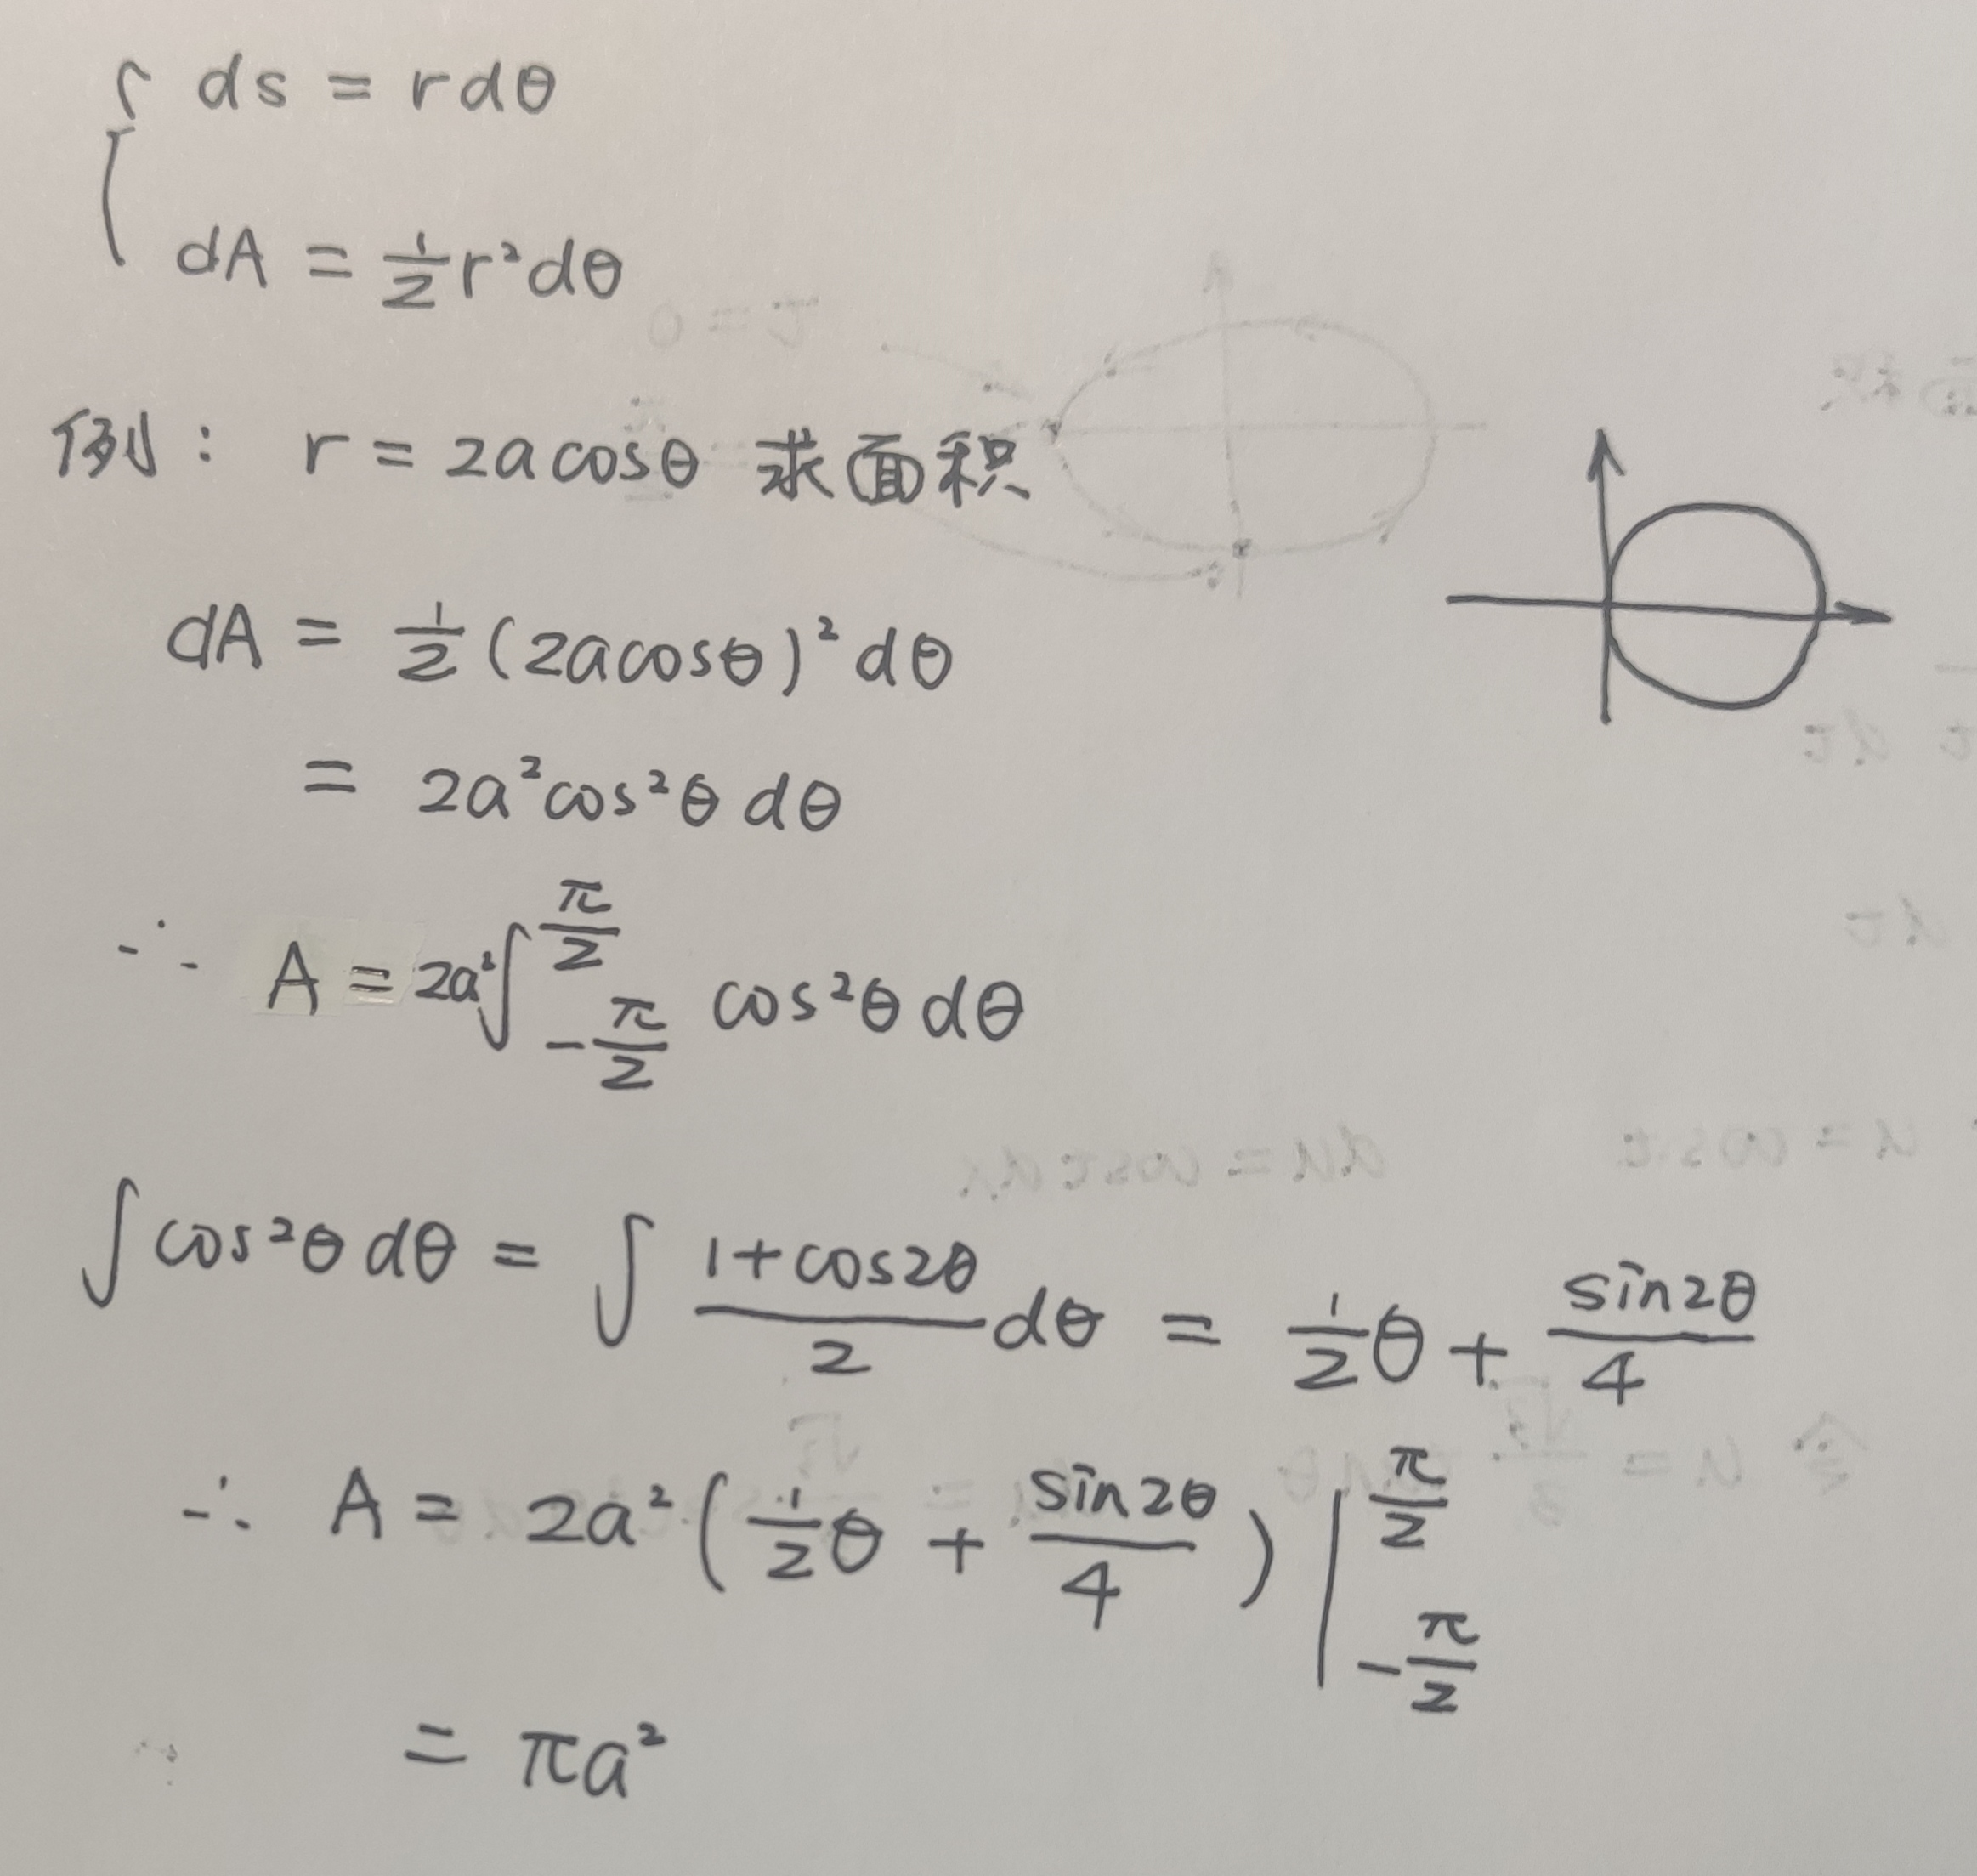 ds = rdθ
dA = ½r²dθ
例: r = 2acosθ 求面积
dA = ½(2acosθ)²dθ
= 2a²cos²θ dθ
∴ A = 2a²∫_{-π/2}^{π/2} cos²θ dθ
∫cos²θ dθ = ∫ (1+cos2θ)/2 dθ = ½θ + sin2θ/4
∴ A = 2a²(½θ + sin2θ/4)|_{-π/2}^{π/2}
= πa²